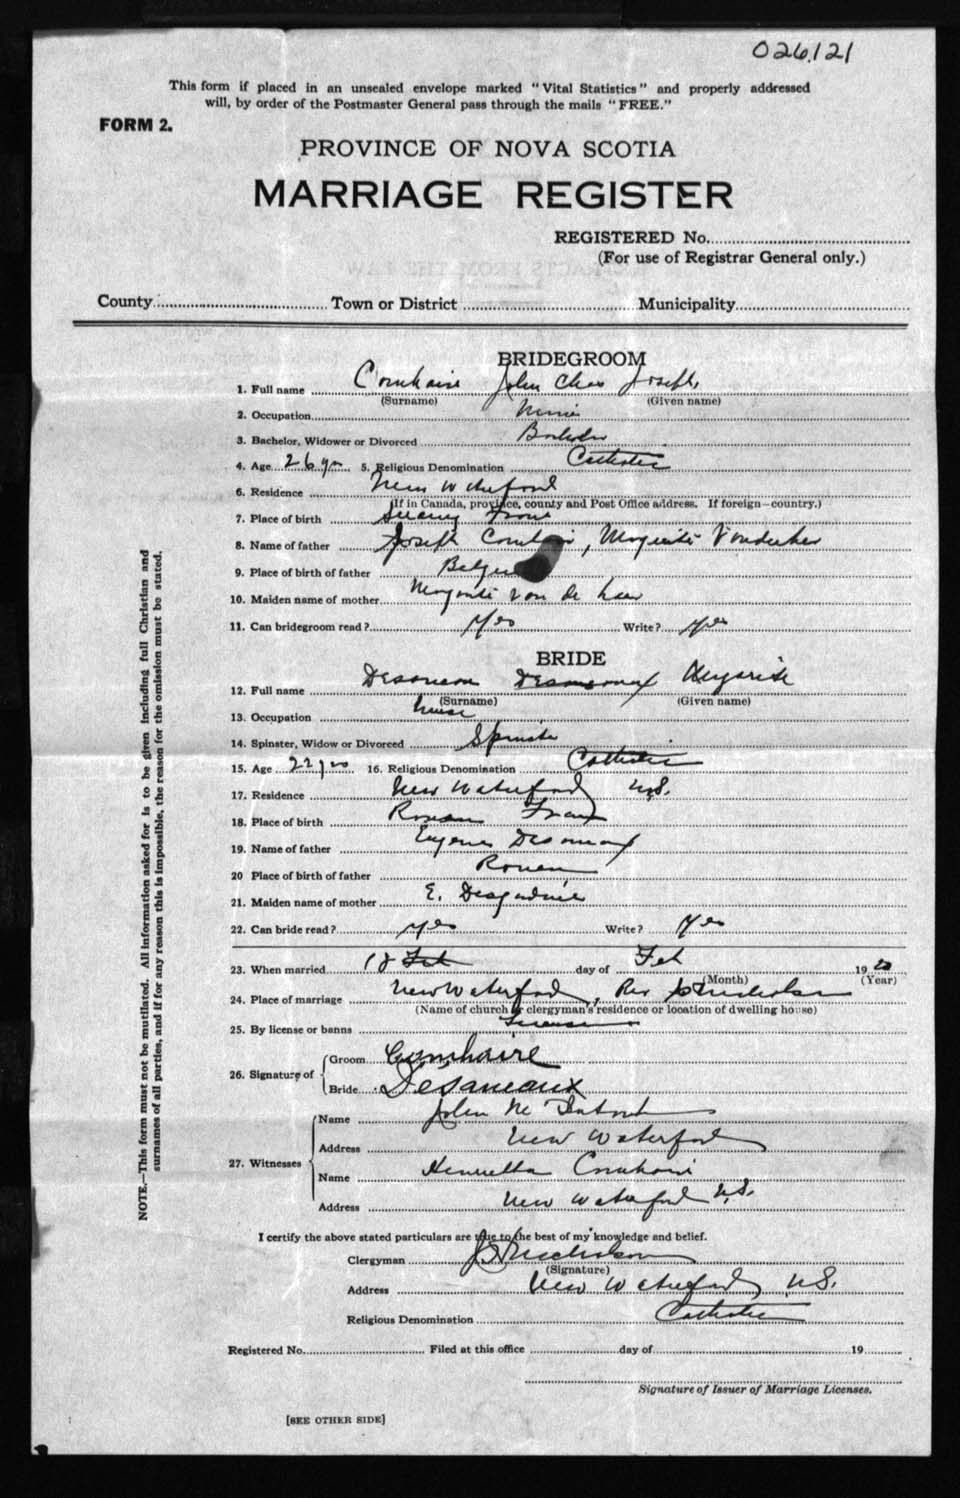 026121
This form if placed in an unsealed envelope marked "Vital Statistics" and properly addressed
will, by order of the Postmaster General pass through the mails "FREE."
FORM 2.
PROVINCE OF NOVA SCOTIA
MARRIAGE REGISTER
REGISTERED No.
(For use of Registrar General only.)
County Town or District Municipality
BRIDEGROOM
1. Full name Cornhaire John Chas Joseph
(Surname) (Given name)
2. Occupation
3. Bachelor, Widower or Divorced Bachelor
4. Age 26 yrs 5. Religious Denomination Catholic
6. Residence New Waterford
(If in Canada, province, county and Post Office address. If foreign—country.)
7. Place of birth
8. Name of father Joseph
9. Place of birth of father
10. Maiden name of mother
11. Can bridegroom read? Yes Write? Yes
BRIDE
12. Full name
(Surname) (Given name)
13. Occupation
14. Spinster, Widow or Divorced Spinster
15. Age 22 yrs 16. Religious Denomination Catholic
17. Residence New Waterford N.S.
18. Place of birth
19. Name of father
20 Place of birth of father Rouen
21. Maiden name of mother E.
22. Can bride read? Yes Write? Yes
23. When married 18 Feb day of Feb 1920
(Month) (Year)
24. Place of marriage New Waterford, Rev
(Name of church or clergyman's residence or location of dwelling house)
25. By license or banns License
26. Signature of Groom Cornhaire
Bride Desameaux
27. Witnesses Name John
Address New Waterford
Name Henrietta Cornhaire
Address New Waterford N.S.
I certify the above stated particulars are true to the best of my knowledge and belief.
Clergyman
(Signature)
Address New Waterford, N.S.
Religious Denomination Catholic
Registered No. Filed at this office day of 19
Signature of Issuer of Marriage Licenses.
[SEE OTHER SIDE]
NOTE.—This form must not be mutilated. All information asked for is to be given including full Christian and
surnames of all parties, and if for any reason this is impossible, the reason for the omission must be stated.